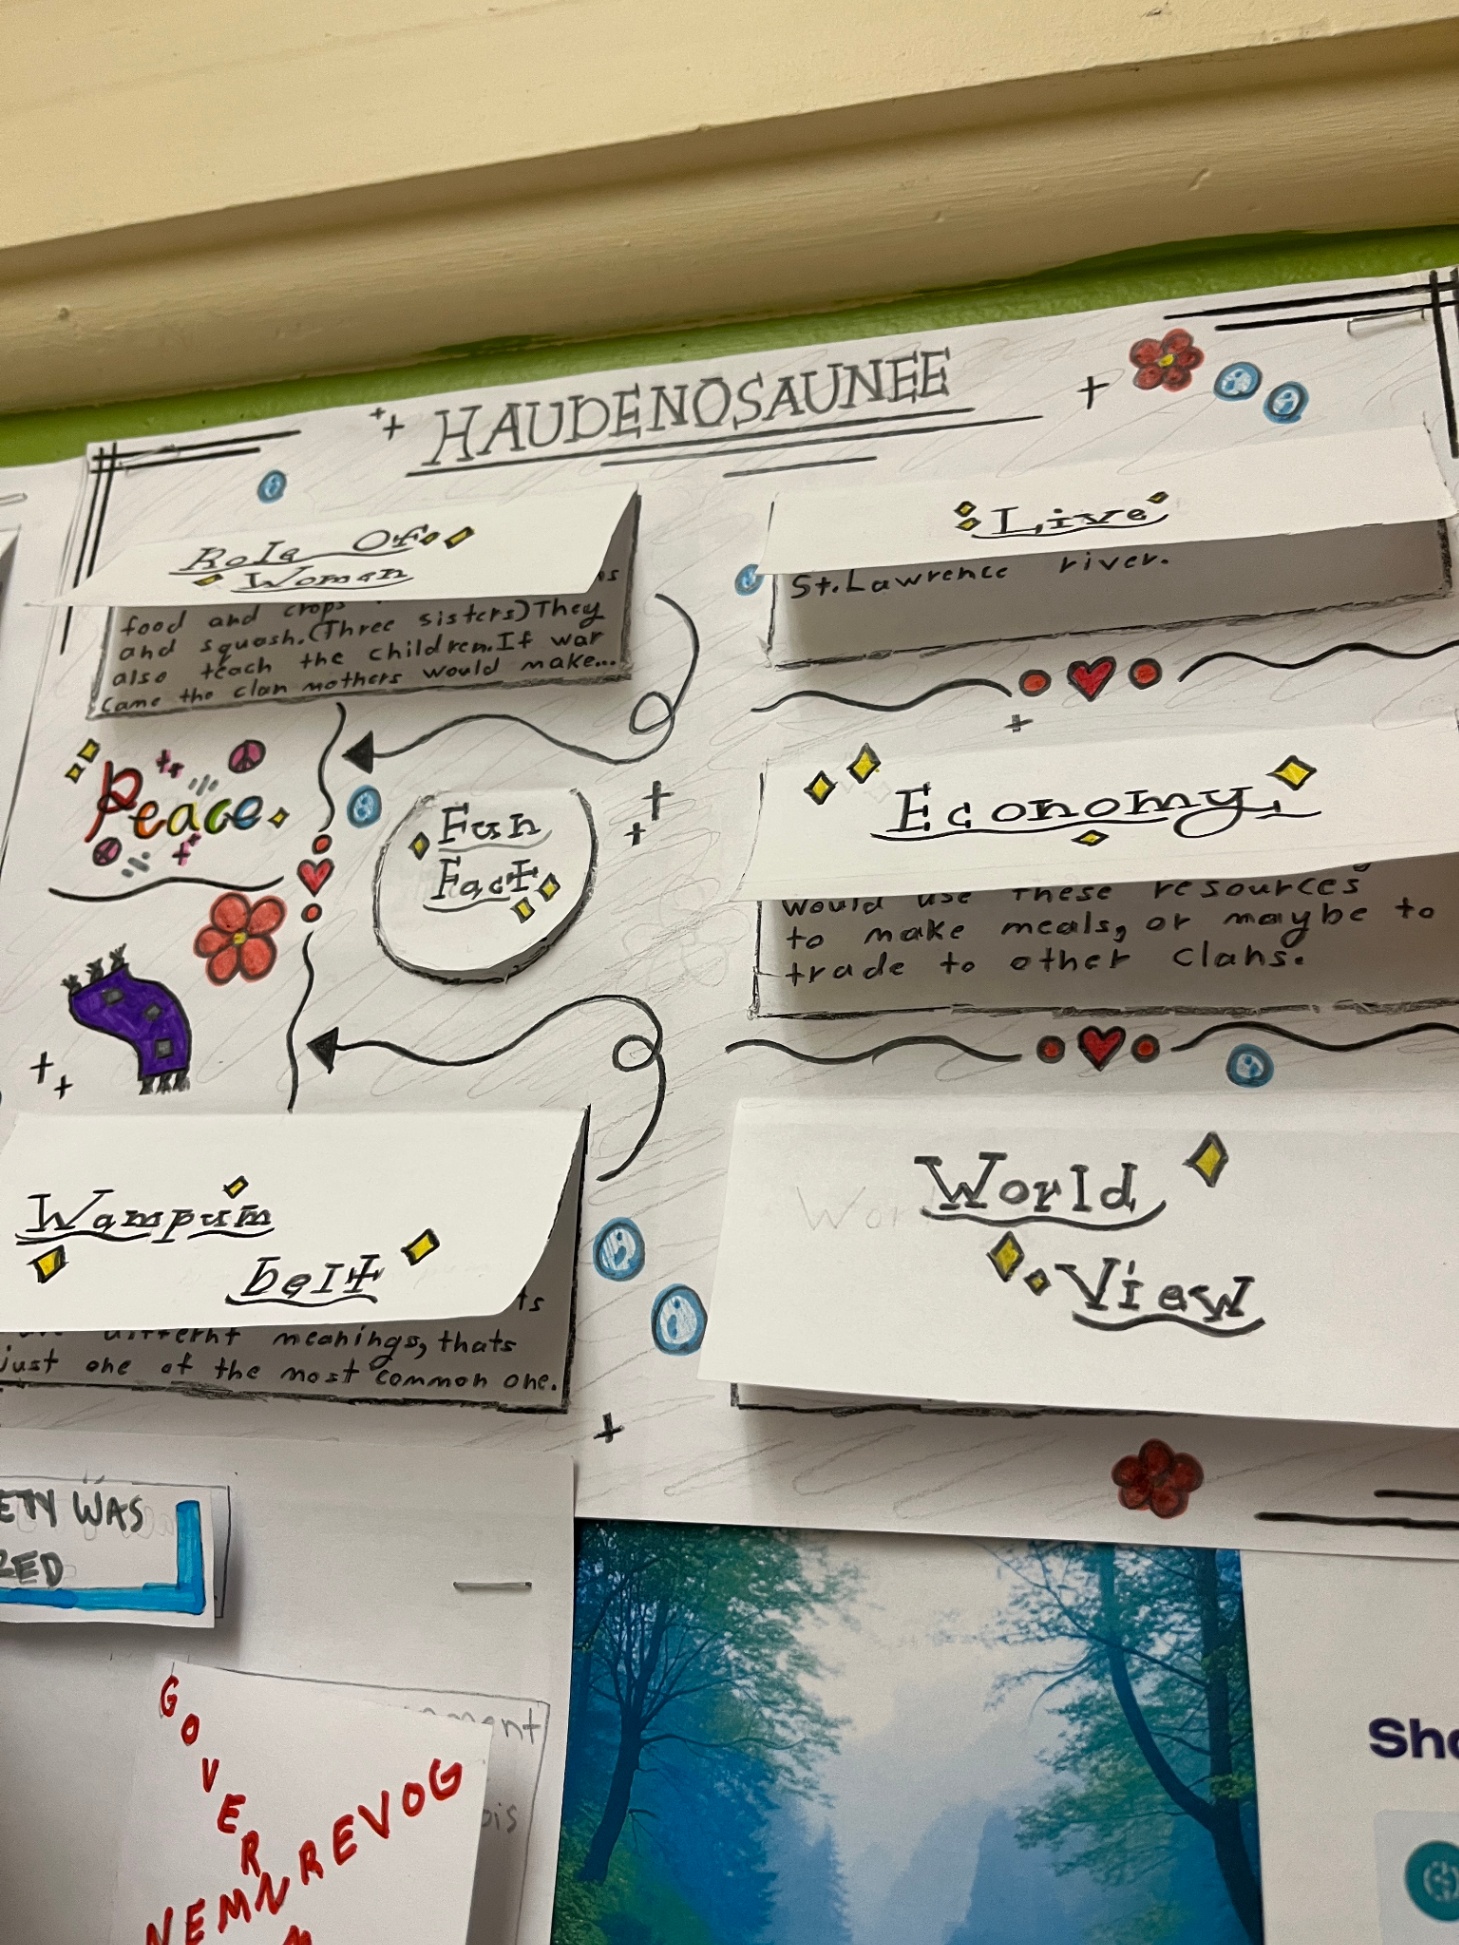 HAUDENOSAUNEE
Role Of
Women
food and crops
and squash.(Three sisters)They
also teach the children.If war
came the clan mothers would make...
Live
St.Lawrence river.
Peace
Fun
Fact
Economy
would use these resources
to make meals, or maybe to
trade to other clans.
Wampum
belt
differnt meanings, thats
just one of the most common one.
World
View
ETY WAS
ZED
GOVERN
NEMNREVOG
Sho